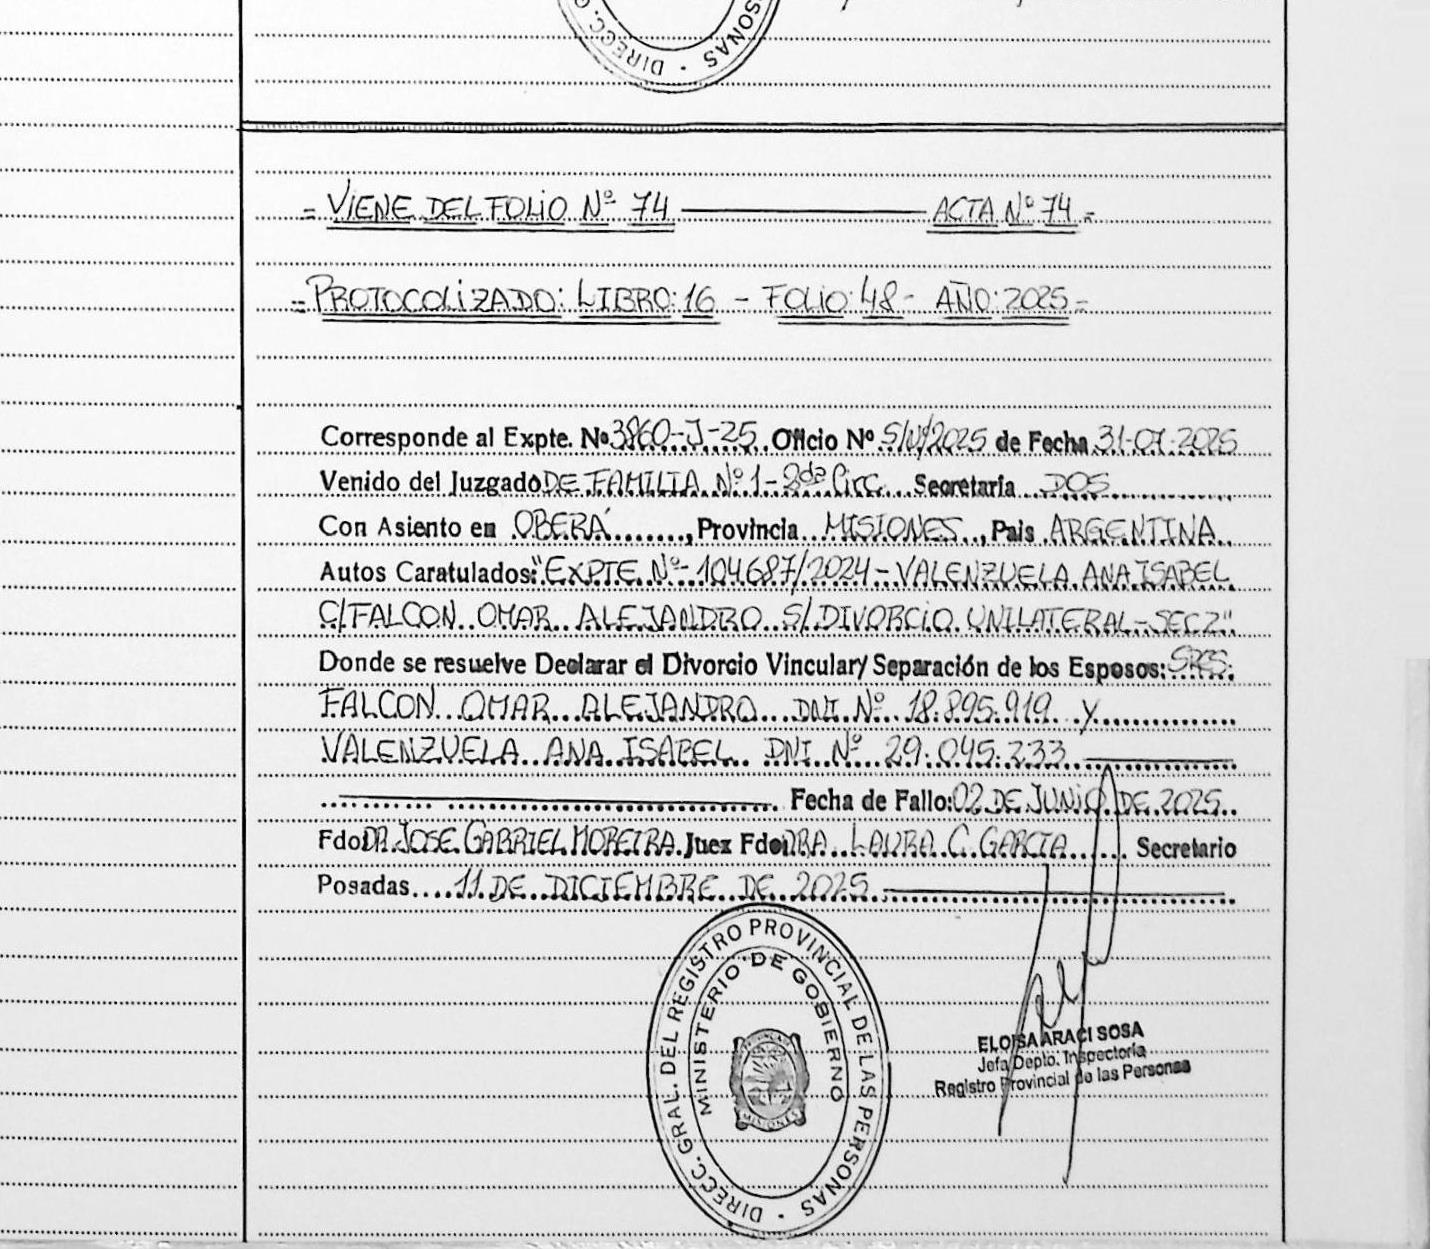 DIRECC. G
SONAS
= VIENE DEL FOLIO Nº 74 ACTA Nº 74 =
= PROTOCOLIZADO: LIBRO: 16 - FOLIO: 48 - AÑO: 2025 =
Corresponde al Expte. Nº 3860-J-25. Oficio Nº S/Nº/2025 de Fecha 31-07-2025
Venido del Juzgado DE FAMILIA Nº 1 - 2da Circ. Secretaría DOS
Con Asiento en OBERÁ, Provincia MISIONES, País ARGENTINA
Autos Caratulados: "EXPTE. Nº 104687/2024 - VALENZUELA ANA ISABEL
C/ FALCON OMAR ALEJANDRO S/ DIVORCIO UNILATERAL - SEC 2"
Donde se resuelve Declarar el Divorcio Vincular/ Separación de los Esposos: SRES.
FALCON OMAR ALEJANDRO DNI Nº 18.895.919 y
VALENZUELA ANA ISABEL DNI Nº 29.045.233
Fecha de Fallo: 02 DE JUNIO DE 2025
Fdo DR. JOSE GABRIEL MOREIRA Juez Fdo DRA. LAURA C. GARCIA Secretario
Posadas 11 DE DICIEMBRE DE 2025
DIRECC. GRAL. DEL REGISTRO PROVINCIAL DE LAS PERSONAS
MINISTERIO DE GOBIERNO
MISIONES
ELOISA ARACI SOSA
Jefa Depto. Inspectoría
Registro Provincial de las Personas